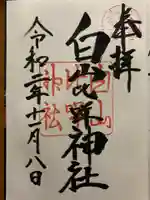 奉拝
白山比咩神社
令和二年十一月八日